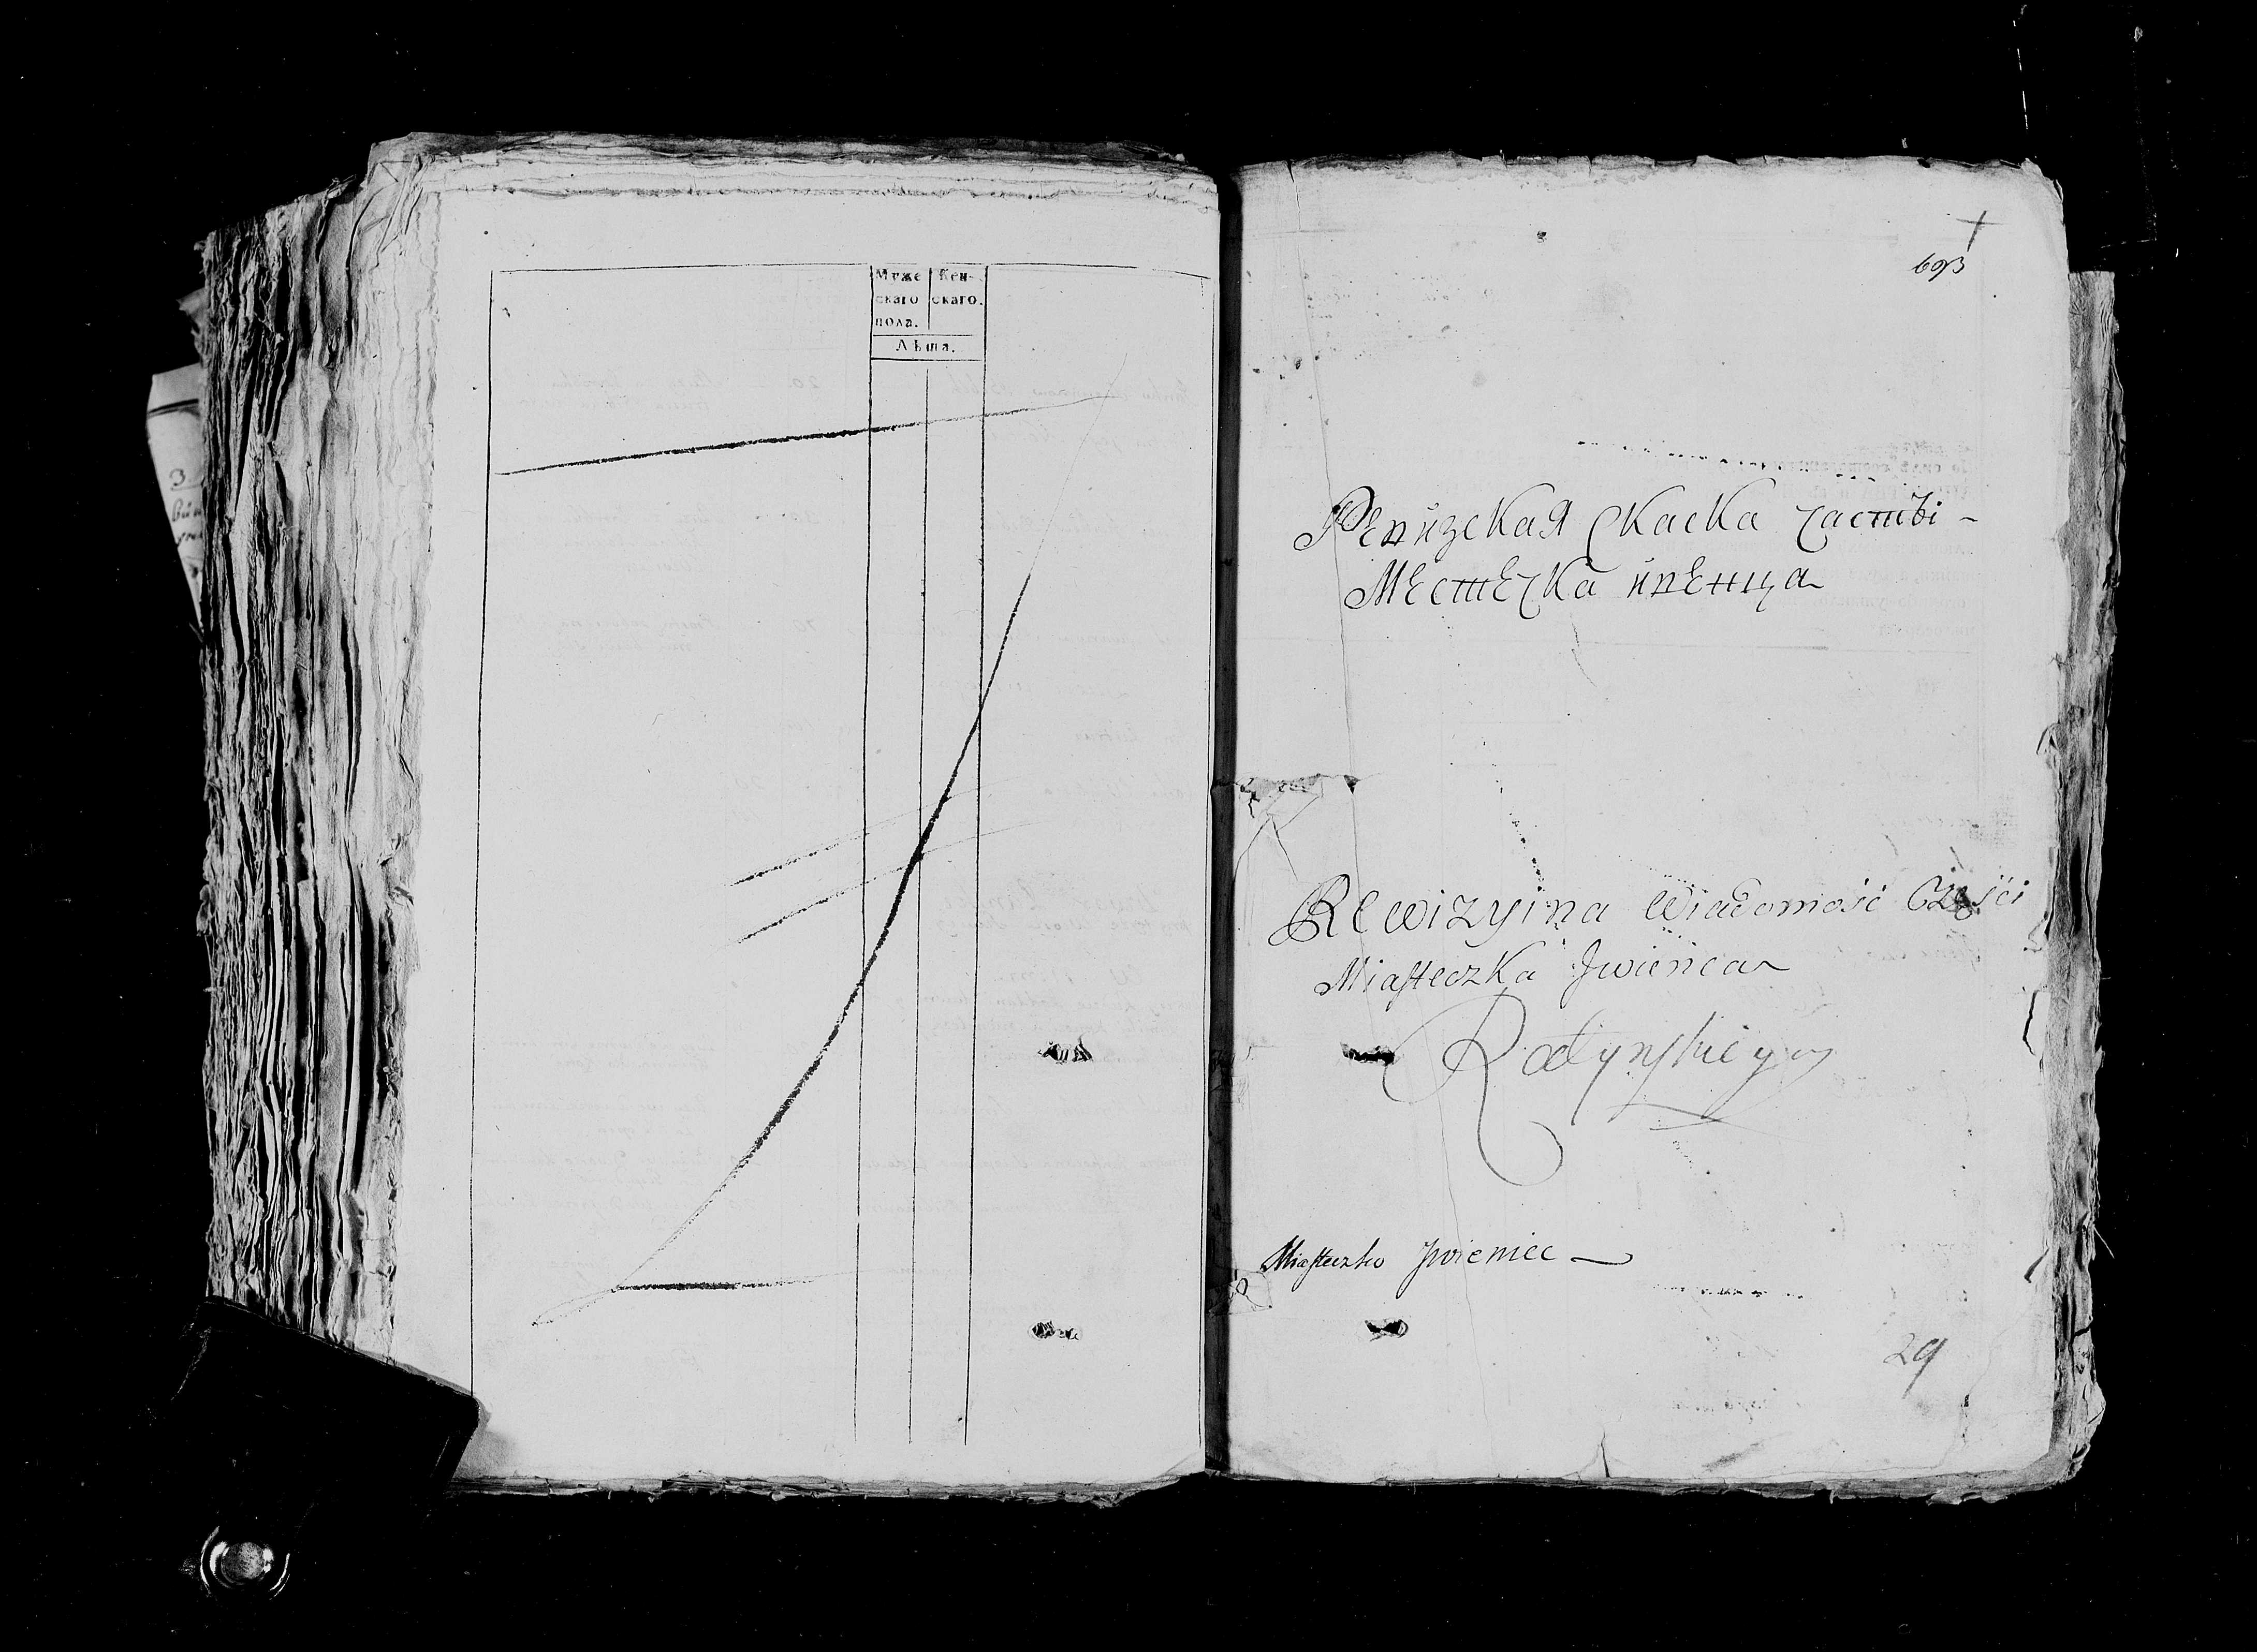 Муже Жен-
скаго скаго.
пола.
Лѣта.
693
Ревизская Скаска Части -
Местечка ивенца
Rewizyina Wiadomość Części
Miasteczka Jwieńca
Ratynskiego
Miasteczko Jwieniec —
29